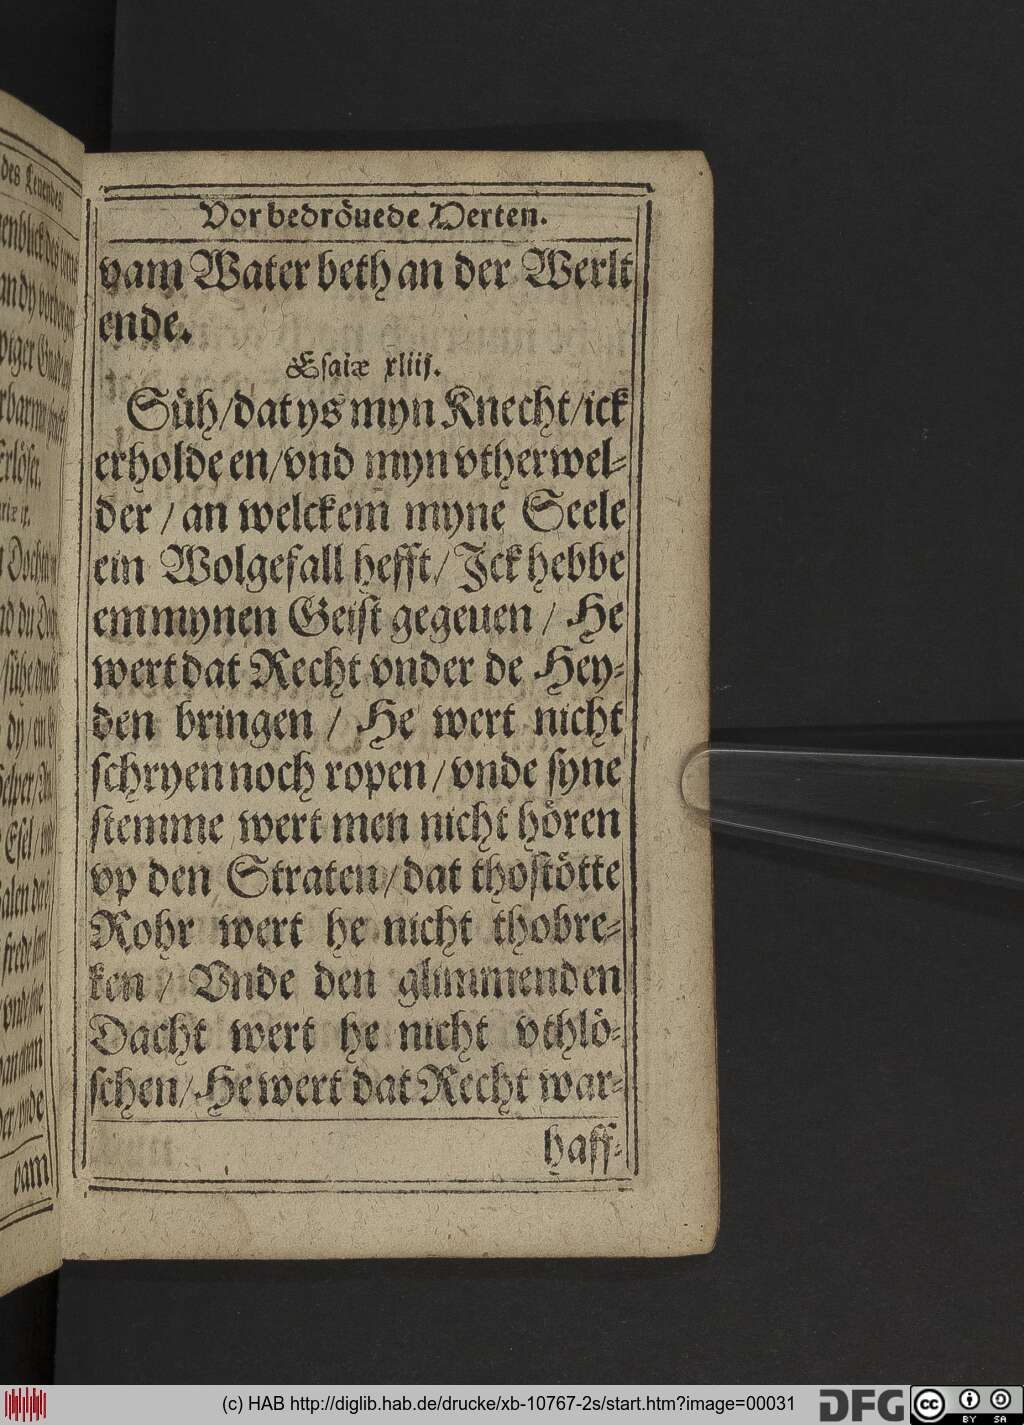 des Leuendes
vam
Vor bedröuede Herten.
vam Water beth an der Werlt
ende.
Esaiæ xliij.
Süh/dat ys myn Knecht/ick
erholde en/vnd myn vtherwel-
der / an welckem myne Seele
ein Wolgefall hefft/ Jck hebbe
em mynen Geist gegeuen / He
wert dat Recht vnder de Hey-
den bringen / He wert nicht
schryen noch ropen/vnde syne
stemme wert men nicht hören
vp den Straten/dat thostötte
Rohr wert he nicht thobre-
ken / Vnde den glimmenden
Dacht wert he nicht vthlö-
schen/ He wert dat Recht war-
haff-
(c) HAB http://diglib.hab.de/drucke/xb-10767-2s/start.htm?image=00031
DFG
cc
BY SA